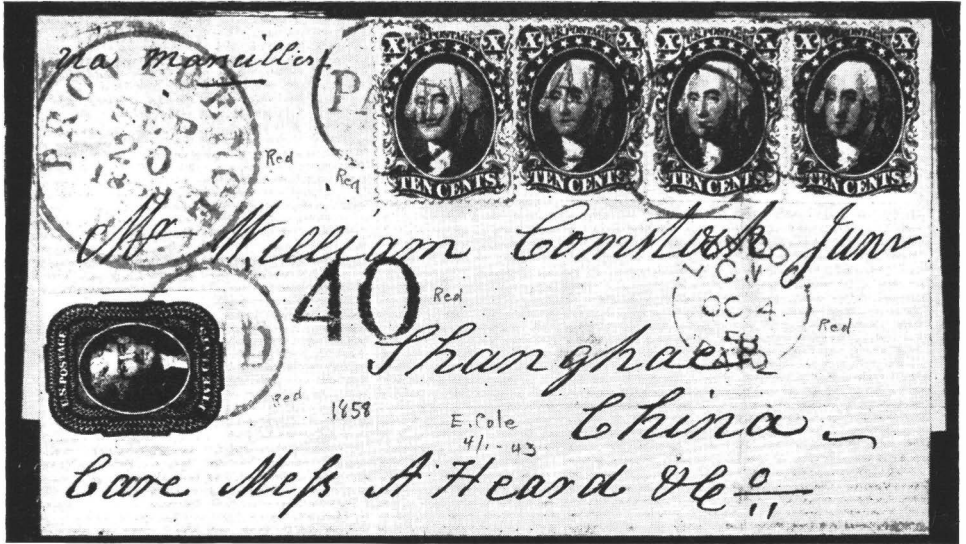 Via Marseilles
PROVIDENCE
SEP
20
1858
Red
PA
Red
X U.S. POSTAGE X
TEN CENTS.
X U.S. POSTAGE X
TEN CENTS.
X U.S. POSTAGE X
TEN CENTS.
X U.S. POSTAGE X
TEN CENTS.
Mr William Comstock Junr
40
Red
OC 4
58
PAID
Red
U.S. POSTAGE
FIVE CENTS
D
Red
Shanghae
1858
E. Cole
4/1-43
China
Care Mess A Heard & Co